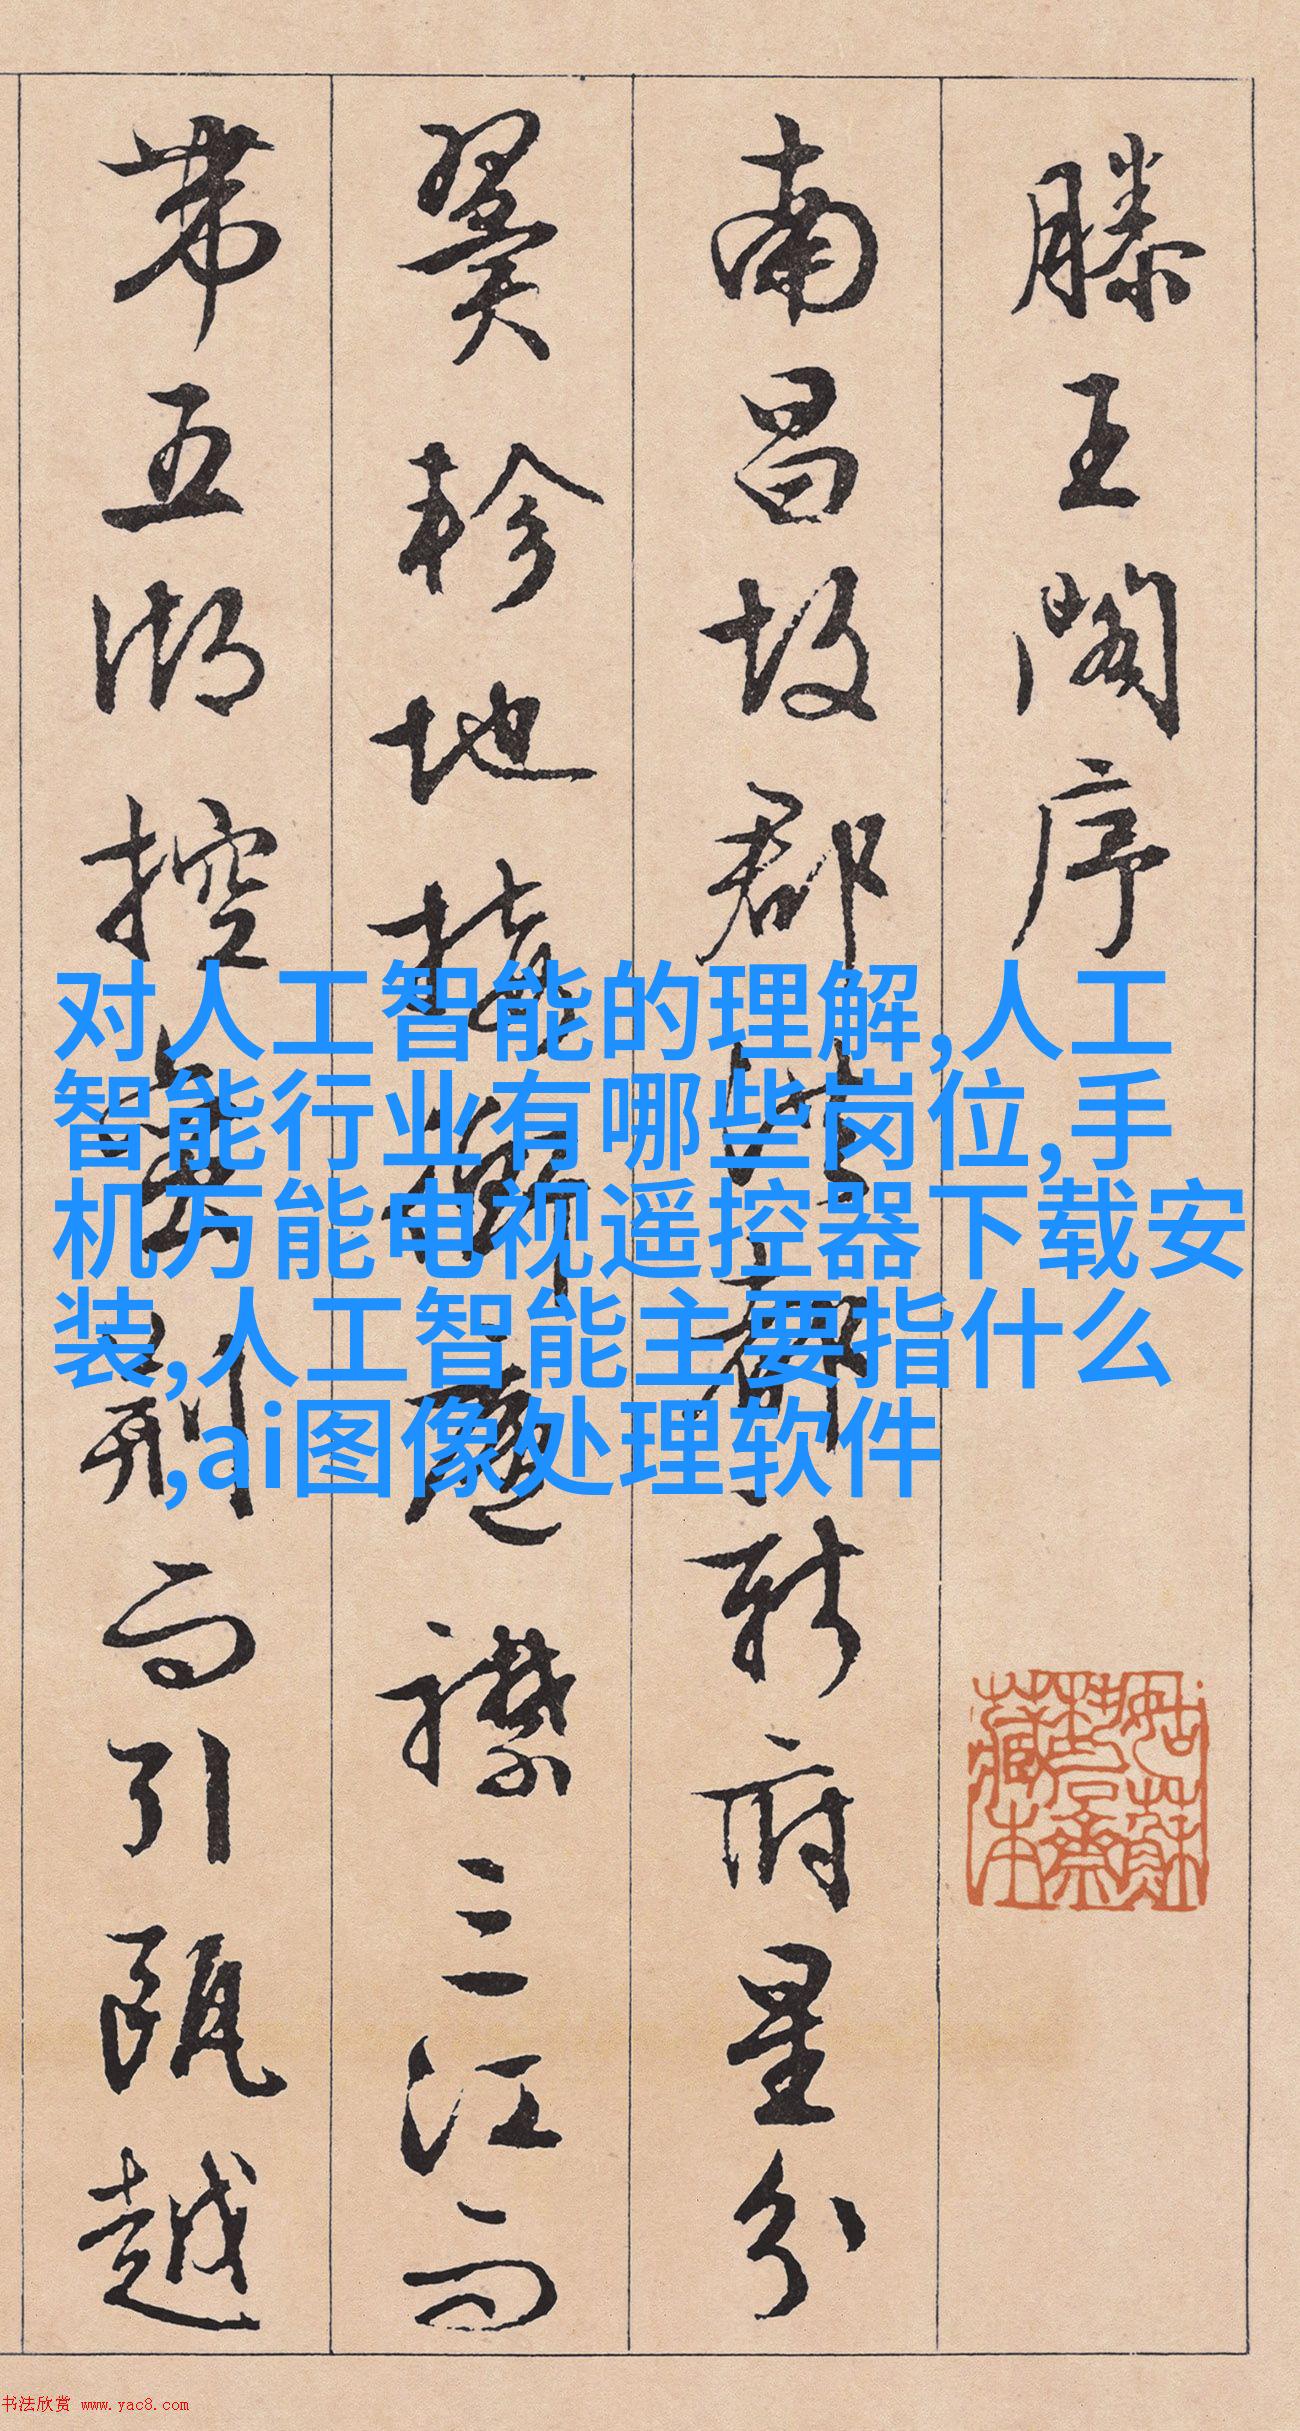 滕王閣序
南昌故郡洪都新府星分
翼軫地接衡廬襟三江而
帶五湖控蠻荆而引甌越
对人工智能的理解,人工
智能行业有哪些岗位,手
机万能电视遥控器下载安
装,人工智能主要指什么
,ai图像处理软件
姑蘇
藏本
书法欣赏 www.yac8.com